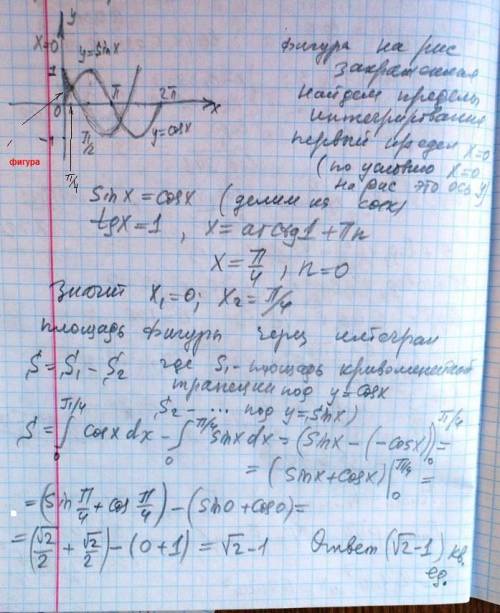 y
x=0
y=sinx
1
0
π
2π
x
-1
π/2
y=cosx
фигура
π/4
фигура на рис
закрашенная
найдем пределы
интегрирования
первый предел x=0
(по условию x=0
на рис это ось y)
sinx = cosx (делим на cosx)
tgx = 1 , x = arctg1 + πn
x = π/4 , n=0
Значит x₁=0; x₂=π/4
площадь фигуры через интеграл
S = S₁ - S₂ где S₁ - площадь криволинейной
трапеции под y=cosx
S₂ - ... под y=sinx)
S = ∫₀^(π/4) cosx dx - ∫₀^(π/4) sinx dx = (sinx - (-cosx))|₀^(π/4) =
= (sinx + cosx)|₀^(π/4) =
= (sin π/4 + cos π/4) - (sin0 + cos0) =
= (√2/2 + √2/2) - (0+1) = √2 - 1 Ответ (√2-1) кв.
ед.